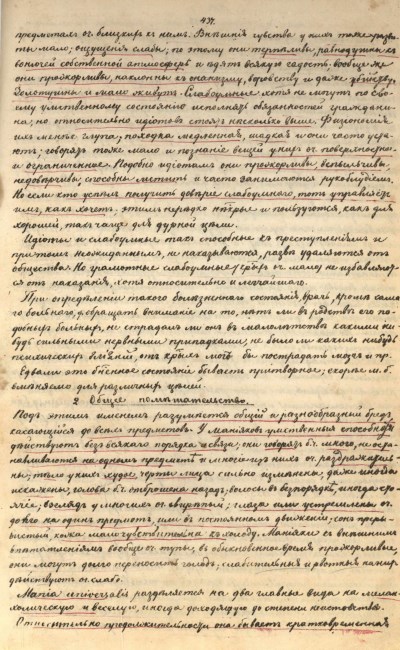 437.
предметамъ отъ близкихъ къ нимъ. Внѣшнія чувства у нихъ тоже разви-
ты мало; ощущенія слабы; по этому они терпѣливы, равнодушны къ
вонючей собственной атмосферѣ и ѣдятъ всякую гадость; вообще же
они прожорливы, наклонны къ онанизму, воровству и даже убійству,
Золотушны и мало живутъ. Слабоумные хотя не могутъ по сво-
ему умственному состоянію исполнять обязанностей граждани-
на; но относительно идіотовъ стоятъ насколько выше. Физіономія
ихъ менѣе глупа; походка медленная, шаткая и они часто уста-
ютъ; говорятъ тоже мало и познаніе вещей у нихъ от. поверхностно
и ограниченное. Подобно идіотамъ они прожорливы, вспыльчивы,
недовѣрчивы; способны мстить и часто занимаются рукоблудіемъ.
Но если кто успѣлъ получить довѣріе слабоумнаго, тотъ управляетъ
имъ, какъ хочетъ; этимъ нерѣдко нѣтрые и пользуются, какъ для
хорошей, такъ чаще для дурной цѣли.
Идіоты и слабоумные такъ способные къ преступленіямъ и
притомъ неожиданнымъ, не наказываются, развѣ удаляются отъ
общества. Но грамотные слабоумные не избавляют-
ся отъ наказанія, хотя относительно и легчайшаго.
При опредѣленіи такого болѣзненнаго состоянія, врачъ, кромѣ сама-
го больнаго, обращать вниманіе на то, нѣтъ ли въ родствѣ его по-
добныхъ больныхъ, не страдалъ ли онъ въ малолѣтствѣ какими ни-
будь сильными нервными припадками, не было ли какихъ нибудь
психическихъ вліяній, отъ крыхъ могъ бы пострадать мозгъ и пр.
Едвали это бненное состояніе бываетъ притворное; скорѣе м.б.
вмѣняемо для различныхъ цѣлей.
2. Общее помѣшательство.
Подъ этимъ именемъ разумѣется общій и разнообразный бредъ,
касающійся до всѣхъ предметовъ. У Маніяковъ умственныя способности
дѣйствуютъ безъ всякаго порядка и связи; они говорятъ от. много, не оста-
навливаются на одномъ предметѣ и многіе изъ нихъ от. раздражитель-
ны; тѣло у нихъ худое, черты лица сильно измѣнены; даже иногда
искажены; голова б.ч. отброшена назадъ; волосы въ безпорядкѣ, иногда кро-
ячіе; взглядъ у многихъ от. свирѣпый; глаза или устремлены от.
долго на одинъ предметъ, или въ постоянномъ движеніи; сонъ преры-
вистый, кожа малочувствительна къ холоду. Маніяки къ внѣшнимъ
впечатлѣніямъ вообще от. тупы, въ обыкновенное время прожорливы,
они могутъ долго переносить голодъ; слабительныя и рвотныя на нихъ
дѣйствуютъ от. слабо.
Mania universalis раздѣляется на два главные вида на мелан-
холическую и веселую, иногда доходящую до степени неистовства.
Относительно продолжительности она бываетъ кратковременная